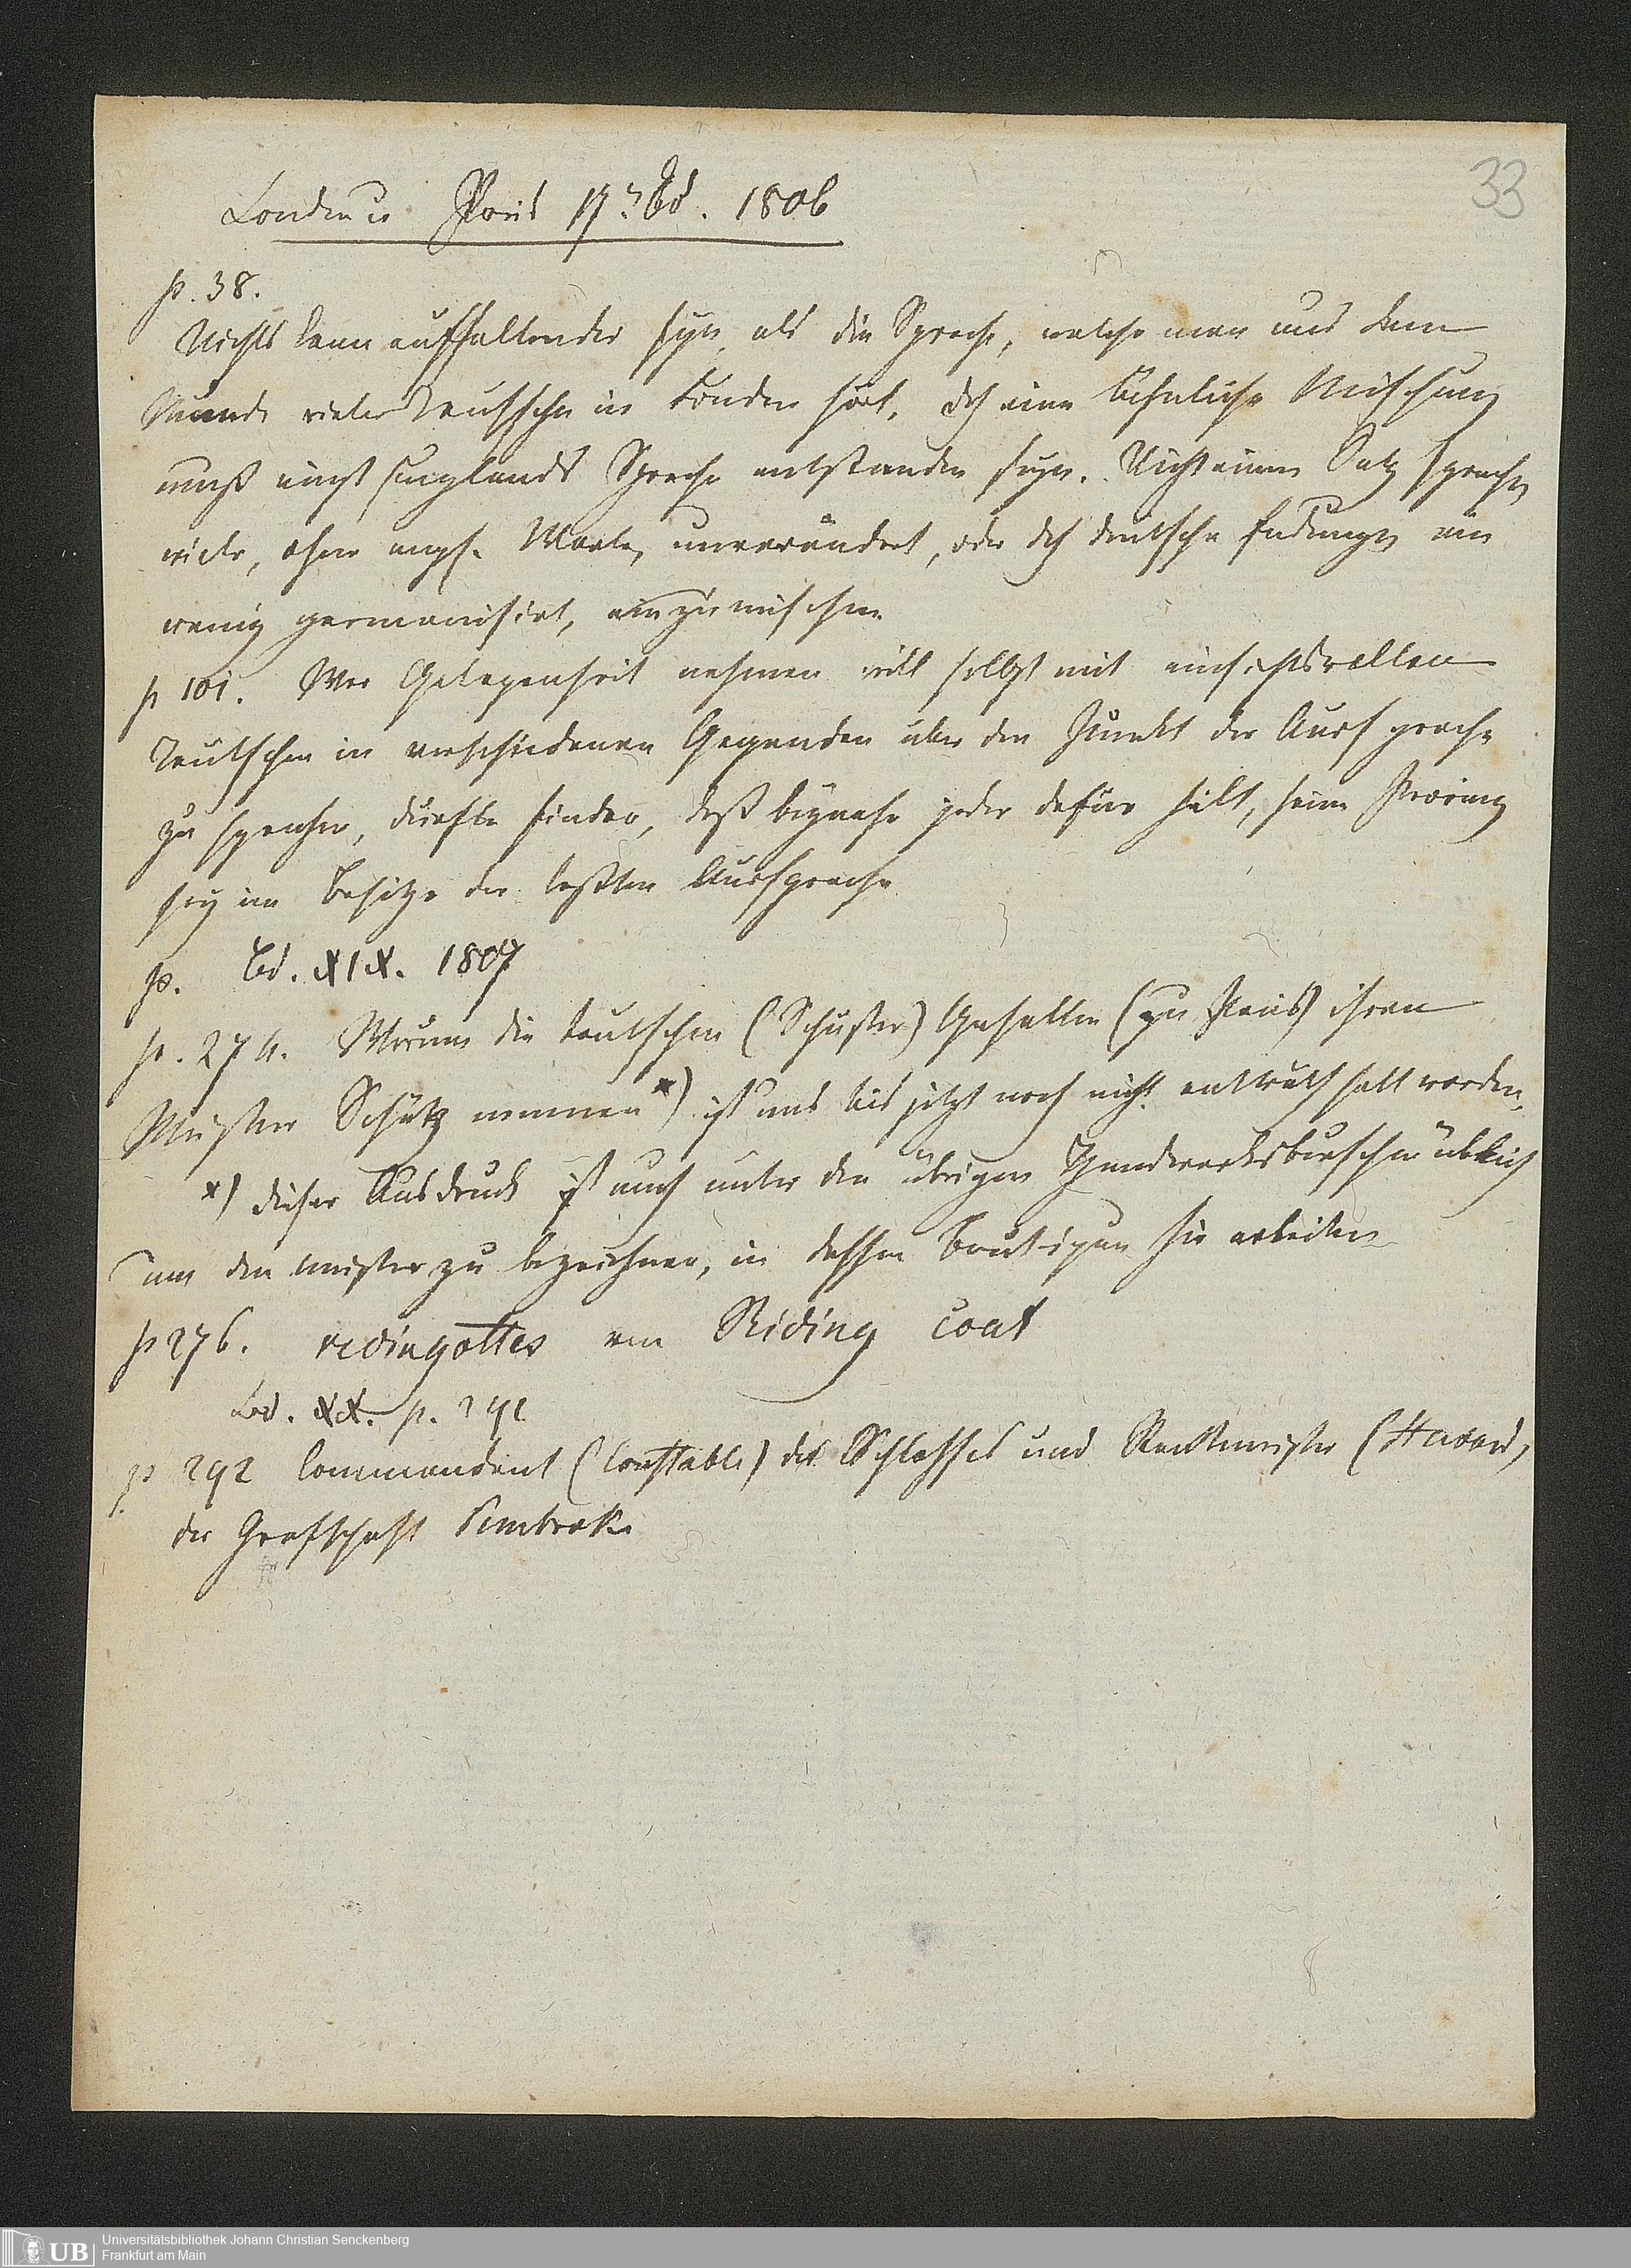 33
London u Paris 17r Bd. 1806
p. 38.
Nichts kann auffallender seyn, als die Sprache, welche man aus dem
Munde vieler Teutschen in London hört. Durch eine ähnliche Mischung
muß einst Englands Sprache entstanden seyn. Nicht einen Satz sprechen
viele, ohne engl. Worte, unverändert, oder durch deutsche Endungen ein
wenig germanisirt, einzumischen.
p 101. Wer Gelegenheit nehmen will selbst mit einsichtsvollen
Teutschen in verschiedenen Gegenden über den Punkt der Aussprache
zu sprechen, dürfte finden, daß beynahe jeder dafür hält, seine Provinz
sey im Besitze der besten Aussprache
p. Bd. XIX. 1807
p. 274. Warum die teutschen (Schuster) Gesellen (zu Paris) ihren
Meister Schütz nennen *) ist uns bis jetzt noch nicht enträthselt worden.
*) dieser Ausdruck ist auch unter den übrigen Handwerksburschen üblich
um den Meister zu bezeichnen, in dessen Boutiquen sie arbeiten
p 276. redingottes von Riding coat
Bd. XX. p. 291
p 292 Commandant (Constable) des Schlosses und Rentmeister (Steward)
der Grafschaft Pembroke
UB
Universitätsbibliothek Johann Christian Senckenberg
Frankfurt am Main